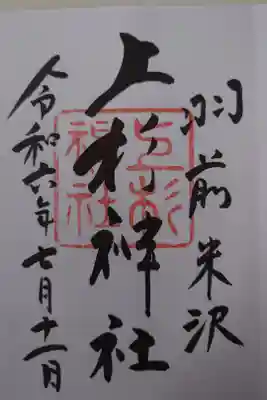 羽前米沢
上杉神社
上杉神社
令和六年七月十一日